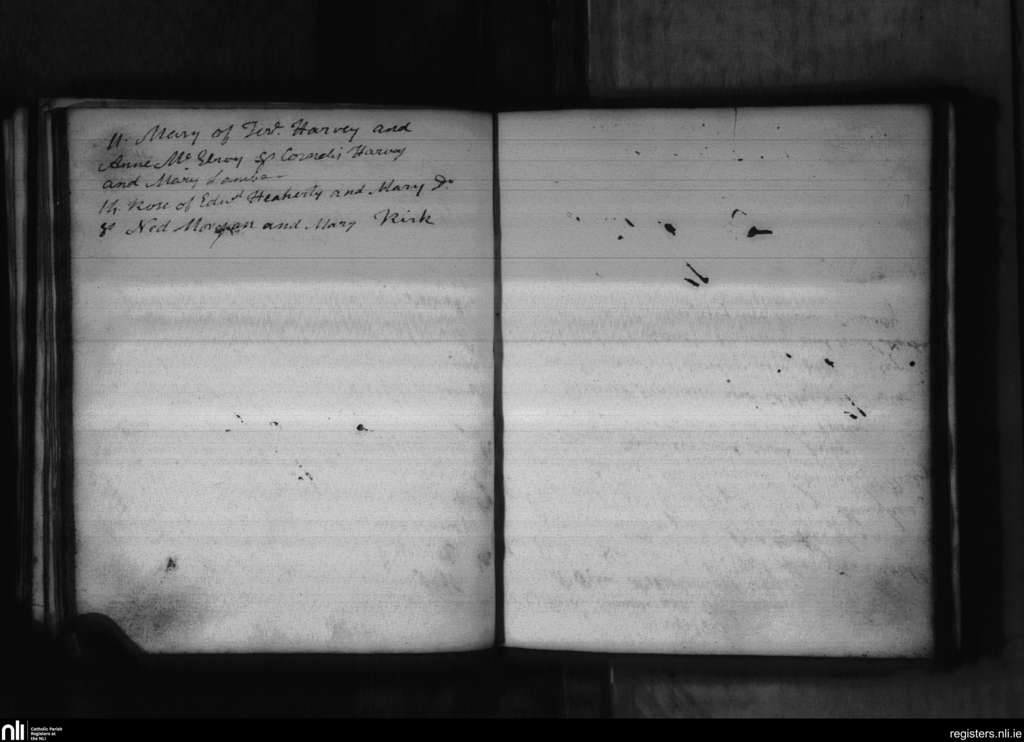 11. Mary of Ter. Harvey and
Anne Mc Elroy Gs Cornels Harvey
and Mary Lambe
14. Rose of Edwd Heaherty and Mary Do
Gs Ned Morgan and Mary Kirk
nli
Catholic Parish
Registers at
the NLI
registers.nli.ie